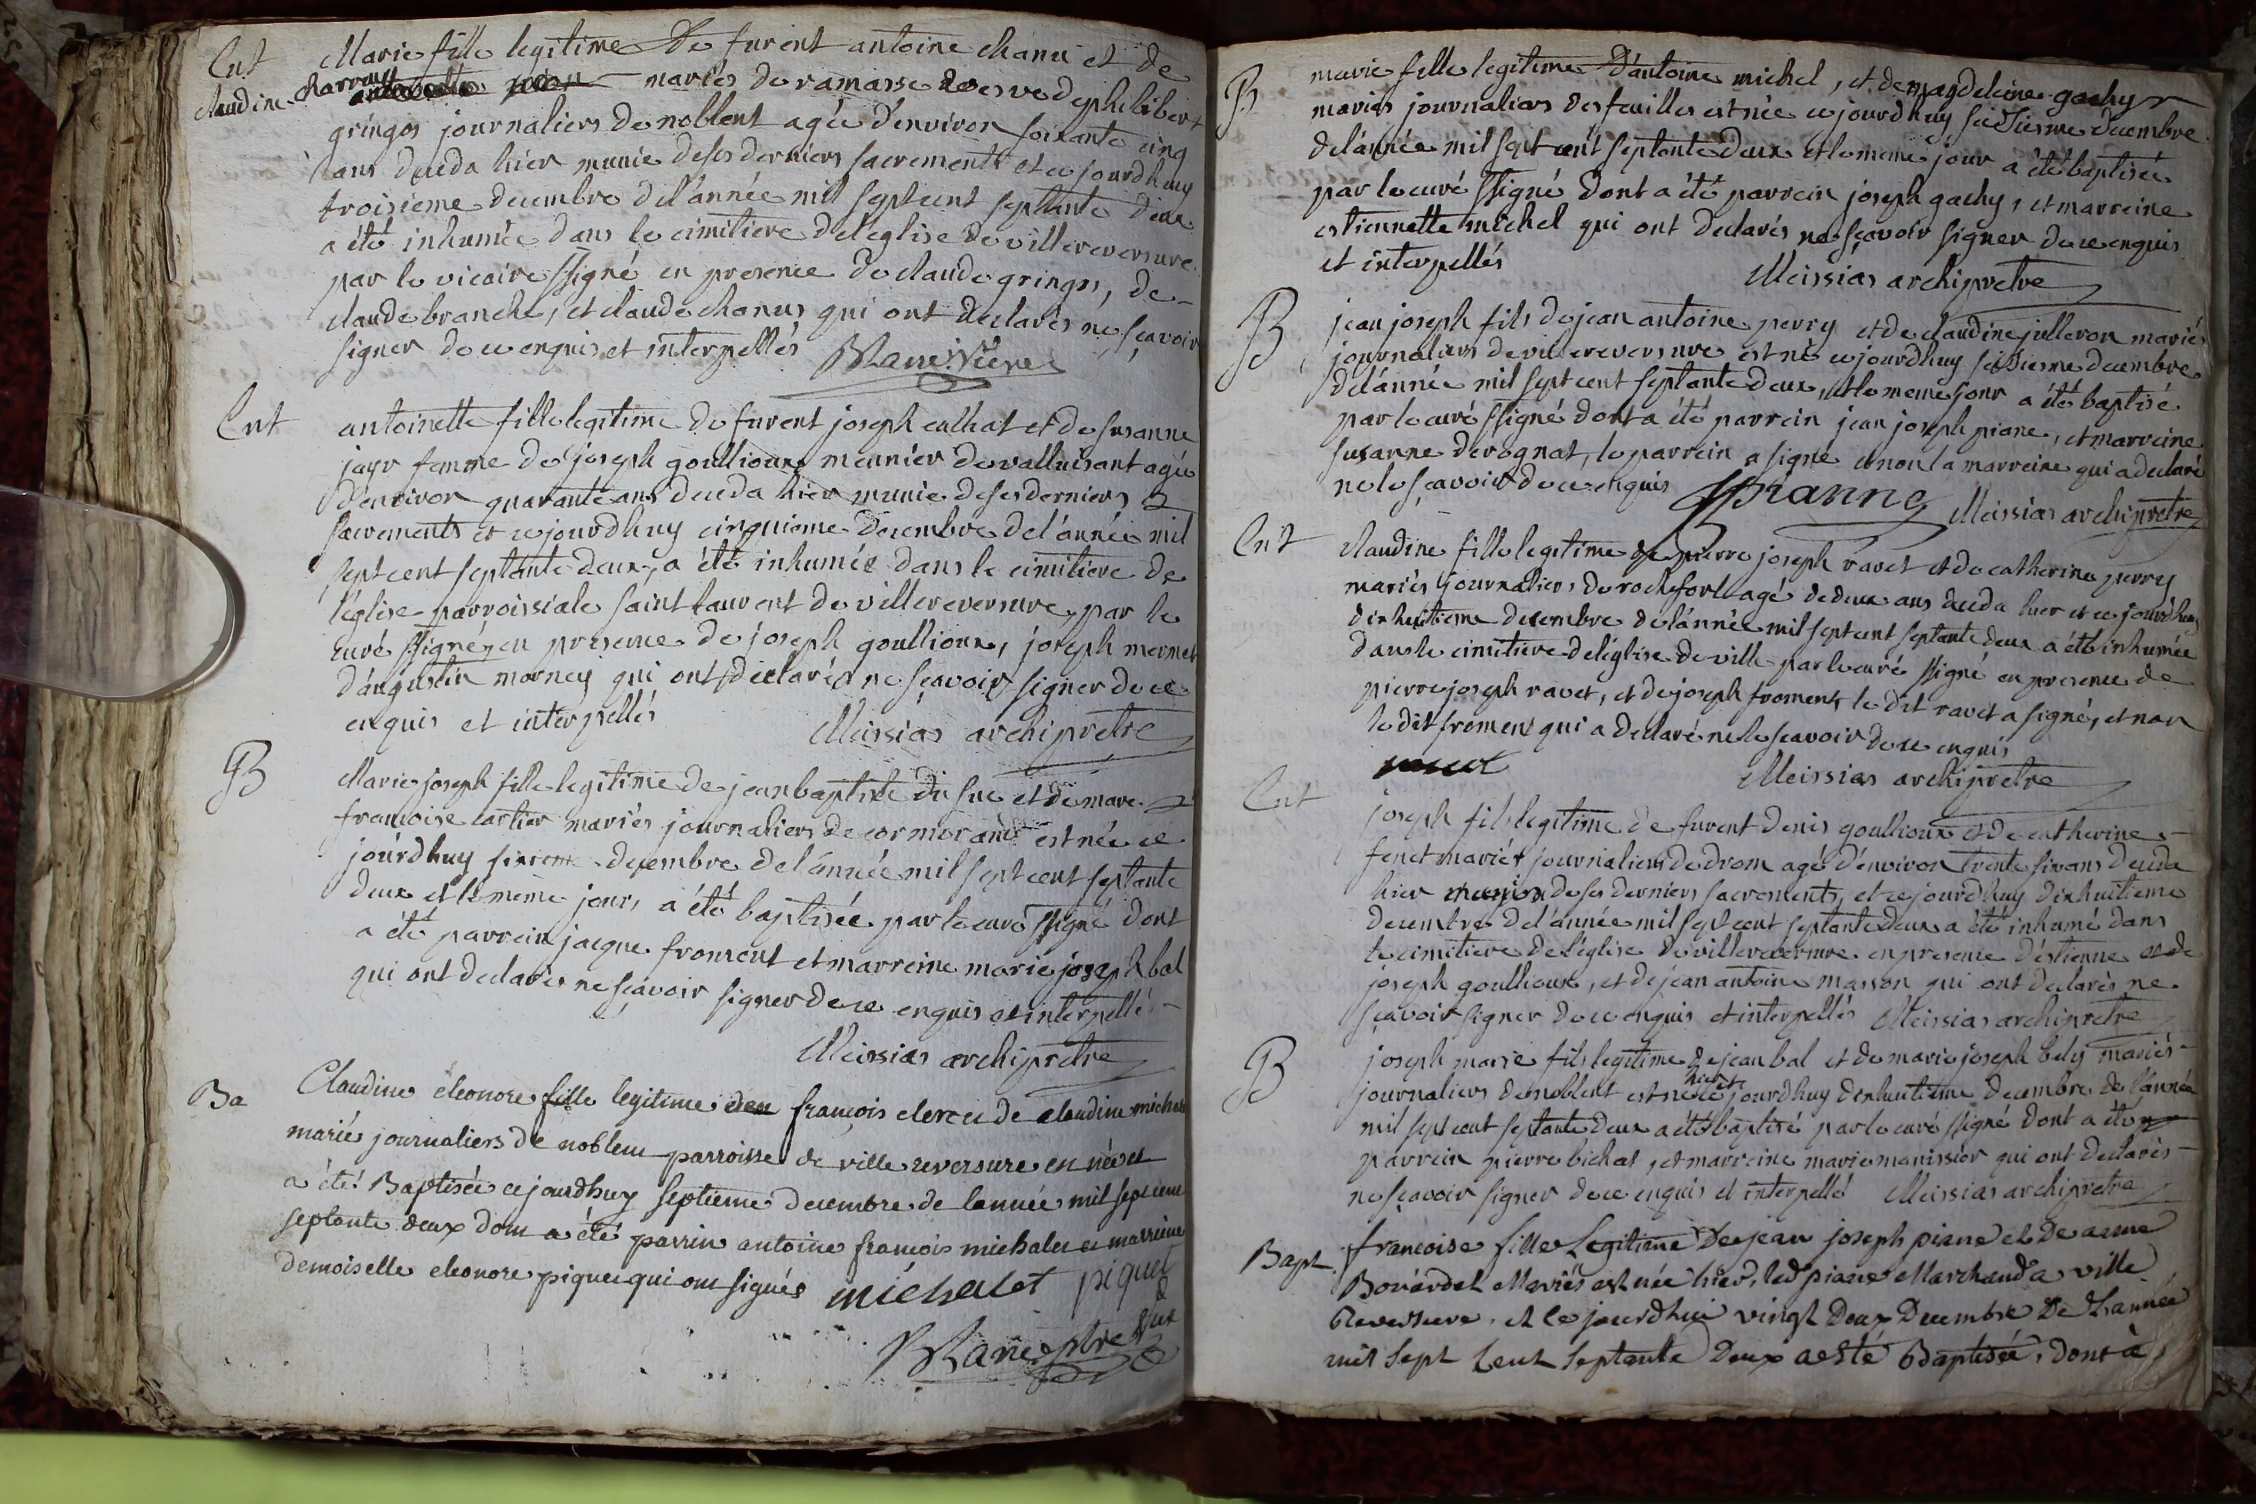 Ent Marie fille legitime de furent antoine chanu et de
claudine charrou mariés de ramasse veesve de philibert
gringos journaliers de noblent agée d'environ soixante cinq
ans deceda hier munie de ses derniers sacrements et ce jourdhuy
troisieme decembre de l'année mil sept cent septante deux
a été inhumée dans le cimitiere de leglise de villereversure
par le vicaire ssigné en presence de claude gringos, de
claude branche, et claude chanus qui ont declarés ne sçavoir
signer de ce enquis et interpellés
Ent antoinette fille legitime de furent joseph calhat et de susanne
jayr femme de joseph goullioux meunier de valluisant agée
d'environ quarante ans deceda hier munie de ses derniers
sacrements et ce jourdhuy cinquieme decembre de l'année mil
sept cent septante deux, a été inhumée dans le cimitiere de
l'église parroissiale saint laurent de villereversure, par le
curé ssigné, en presence de joseph goullioux, joseph mermet
d'augustin morney qui ont declarés ne sçavoir signer de ce
enquis et interpellés Meissias archiprêtre
B Marie joseph fille legitime de jean baptiste du suc et de marie
francoise cartier mariés journaliers de cormorand est née ce
jourdhuy sixieme decembre de l'année mil sept cent septante
deux et le même jour, a été baptisée par le curé ssigné dont
a été parrein jacque froment et marreine marie joseph bal
qui ont declarés ne sçavoir signer de ce enquis et interpellé
Meissias archiprêtre
Ba Claudine eleonore fille legitime de françois clerc et de claudine michal
mariés journaliers de noblent parroisse de ville reversure est née et
a été Baptisée ce jourdhuy septieme decembre de lannée mil sept cent
septante deux dont a été parrin antoine françois michalet et marreine
demoiselle eleonore piquet qui ont signés michalet piquet
B marie fille legitime d'antoine michel, et de magdeleine gachy
mariés journaliers des feuilles est née ce jourdhuy seisiesme decembre
de l'année mil sept cent septante deux et le meme jour a été baptisée
par le curé ssigné dont a été parrein joseph gachy, et marreine
estiennette michel qui ont declarés ne sçavoir signer de ce enquis
et interpellés Meissias archiprêtre
B jean joseph fils de jean antoine perry et de claudine julleron mariés
journaliers de villereversure est né ce jourdhuy seisiesme decembre
de l'année mil sept cent septante deux, et le meme jour a été baptisé
par le curé ssigné dont a été parrein jean joseph piane, et marreine
susanne derognat, le parrein a signé et non la marreine qui a declaré
ne le sçavoir de ce enquis Pianne Meissias archiprêtre
Ent claudine fille legitime de pierre joseph ravet et de catherine perry
mariés journaliers de rochefort agé de deux ans deceda hier et ce jourdhuy
dixhuitieme decembre de l'année mil sept cent septante deux a été inhumée
dans le cimitiere de l'église de ville par le curé ssigné en presence de
pierre joseph ravet, et de joseph froment le dit ravet a signé, et non
le dit froment qui a declaré ne le sçavoir de ce enquis
Meissias archiprêtre
Ent joseph fils legitime de furent denis goullioux et de catherine
fenet mariés journaliers de drom agé d'environ trente six ans deceda
hier munis de ses derniers sacrements, et ce jourdhuy dixhuitieme
decembre de l'année mil sept cent septante deux a été inhumé dans
le cimitiere de l'église de villereversure en presence d'estienne et de
joseph goullioux, et de jean antoine masson qui ont declarés ne
sçavoir signer de ce enquis et interpellés Meissias archiprêtre
B joseph marie fils legitime de jean bal et de marie joseph bely mariés
journaliers de noblent est né hier et ce jourdhuy dixhuitieme decembre de l'année
mil sept cent septante deux a été baptisé par le curé ssigné dont a été
parrein pierre bichat, et marreine marie manissier qui ont declarés
ne sçavoir signer de ce enquis et interpellé Meissias archiprêtre
Bapt. françoise fille Legitime de jean joseph piane et de anne
Bouardel Mariés est née hier, led piane Marchand a ville
Reversure, et ce jourdhui vingt Deux Decembre de L'année
mil sept Cent septante Deux a esté Baptisée, dont à